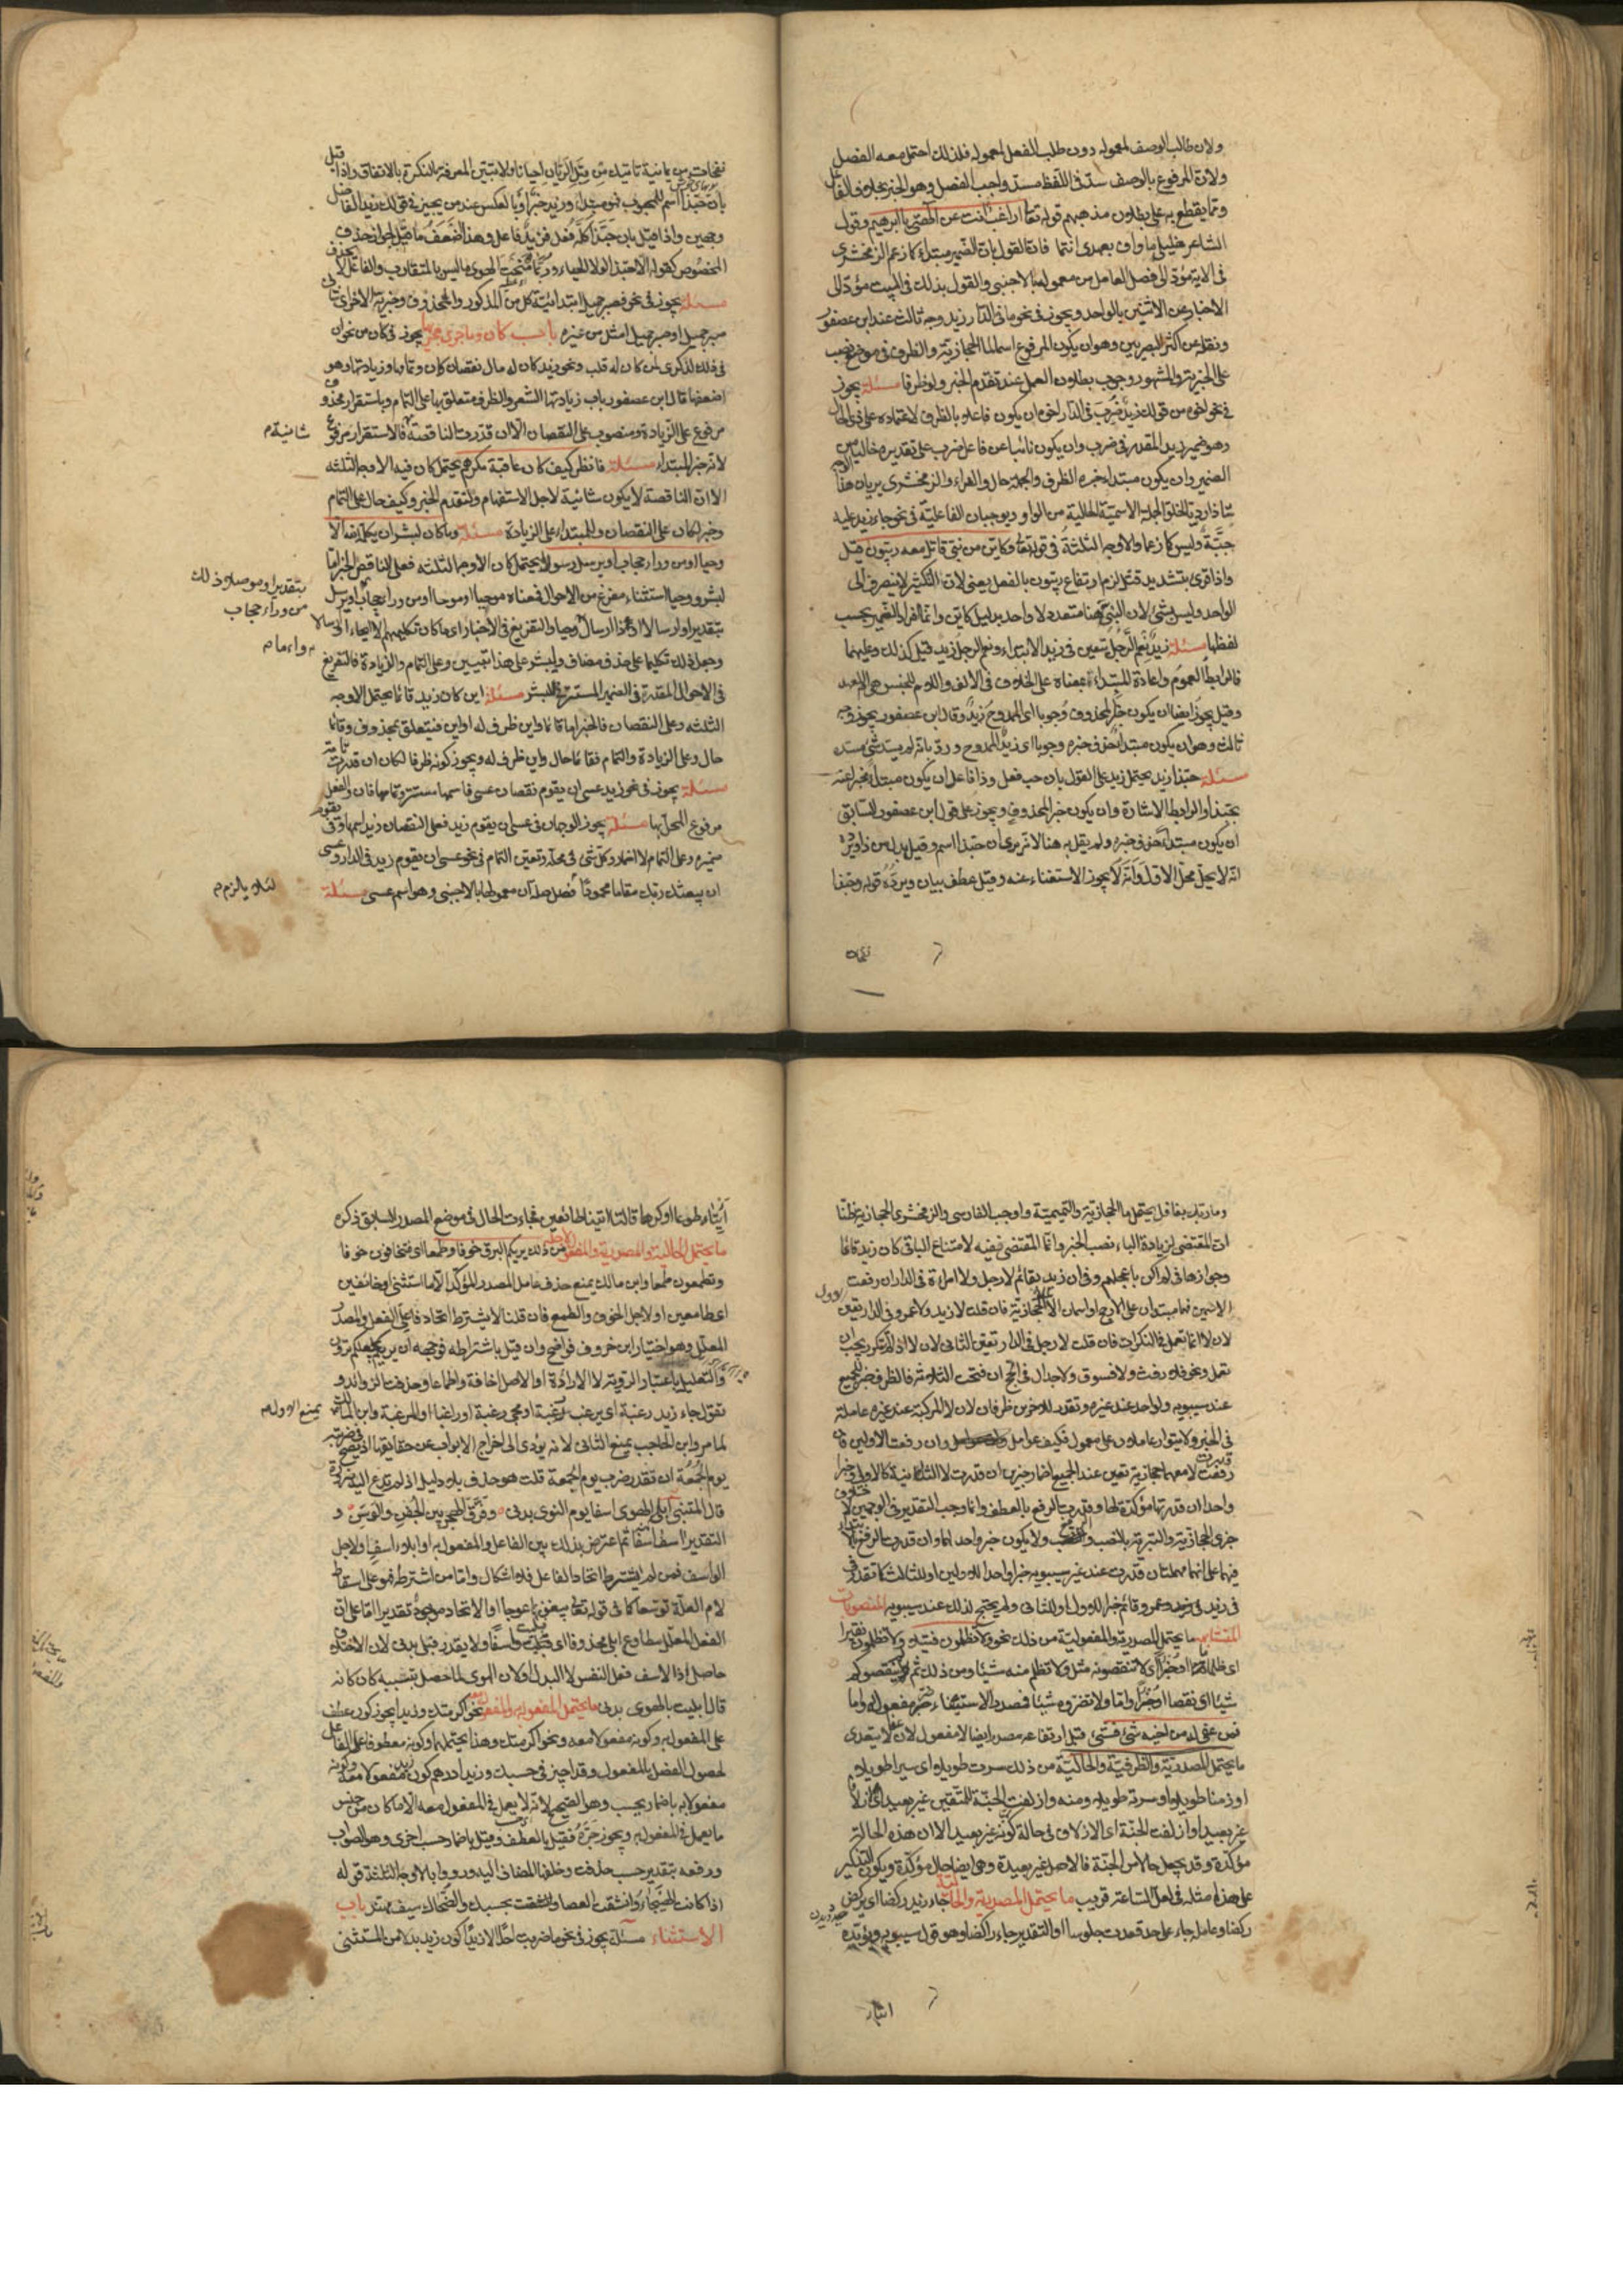 ولان طالب الوصف لمعموله دون طلب الفعل لمعموله فلذلك احتمل معه الفصل
ولان المرفوع بالوصف سدّ فى اللفظ مسدّ واجب الفصل وهو الخبر بخلاف الفاعل
وممّا يقطع به على بطلان مذهبهم قوله تعا اراغب انت عن الهتى يا ابرهيم وقول
الشاعر خليلى ما واف بعهدى انتما فان القول بان الضمير مبتدا كما زعم الزمخشرى
فى الاية مؤد الى فصل العامل من معموله بالاجنبى والقول بذلك فى البيت مؤد الى
الاخبار عن الاثنين بالواحد ويجوز فى نحو ما فى الدار زيد وجه ثالث عند ابن عصفور
ونقله عن اكثر البصريين وهو ان يكون المرفوع اسما لما الحجازية والظرف فى موضع نصب
على الخبرية والمشهور وجوب بطلان العمل عند تقدم الخبر ولو ظرفا مسئلة يجوز
فى نحو اخوه من قولك زيد ضرب فى الدار اخوه ان يكون فاعلا بالظرف لاعتماده على ذى الحال
وهو ضمير زيد المقدر فى ضرب وان يكون نائبا عن فاعل ضرب على تقديره خاليا من
الضمير وان يكون مبتدا خبره الظرف والجملة حال والفراء والزمخشرى يريان هذا
شاذا رديا لخلو الجملة الاسمية الحالية من الواو ويوجبان الفاعلية فى نحو جاء زيد عليه
جبّة وليس كما زعما والاوجه الثلثة فى قوله تعا وكاين من نبى قاتل معه ربيون قيل
واذا قرئ بتشديد قتل لزم ارتفاع ربيون بالفعل يعنى لان التكثير لا ينصرف الى
الواحد وليس بشئ لان النبى هنا متعدد لا واحد بدليل كاين وانما افراد الضمير بحسب
لفظها مسئلة زيد نعم الرجل يتعين فى زيد الابتداء ونعم الرجل زيد قيل كذلك وعليهما
فالرابط العموم واعادة المبتداء بمعناه على الخلاف فى الالف واللام للجنس هى ام للعهد
وقيل يجوز ايضا ان يكون خبرا لمحذوف وجوبا اى الممدوح زيد وقال ابن عصفور يجوز وجه
ثالث وهو ان يكون مبتدا حذف خبره وجوبا اى زيد الممدوح ورد بانه لم يسد شئ مسده
مسئلة حبذا زيد يحتمل زيد على القول بان حب فعل وذا فاعل ان يكون مبتدا مخبرا عنه
بحبذا والرابط الاشارة وان يكون خبرا لمحذوف ويجوز على قول ابن عصفور السابق
ان يكون مبتدا حذف خبره ولم يقل به هنا لانه يرى ان حبذا اسم وقيل بدل من ذا ويرده
انه لا يحل محل الاول وانه لا يجوز الاستغناء عنه وقيل عطف بيان ويرده قوله وحبذا
نفحات من يمانية تاتيك من قبل الريان احيانا ولا تبين المعرفة بالنكرة بالاتفاق واذا قيل
بان حبذا اسم للمحبوب فهو مبتدا وزيد خبر او بالعكس عند من يجيز فى قولك زيد الفاضل
وجهين واذا قيل بان حبذا كله فعل فزيد فاعل وهذا اضعف ما قيل لجواز حذف
المخصوص كقوله الا حبذا لولا الحياء وربما منحت الهوى ما ليس بالمتقارب والفاعل لا يحذف
مسئلة يجوز فى نحو فصبر جميل ابتدائية كل من المذكور والمحذوف وخبرية الاخر اى شانى
صبر جميل او صبر جميل امثل من غيره باب كان وما جرى مجراها يجوز فى كان من نحو ان
فى ذلك لذكرى لمن كان له قلب ونحو زيد كان له مال نقصان كان وتمامها وزيادتها وهو
اضعفها قال ابن عصفور باب زيادتها الشعر والظرف متعلق بها على التمام وباستقرار محذوف
مرفوع على الزيادة ومنصوب على النقصان الا ان قدرت الناقصة فالاستقرار مرفوع
شانية م
لانه خبر المبتداء مسئلة فانظر كيف كان عاقبة مكرهم يحتمل كان فيه الاوجه الثلثة
الا ان الناقصة لا يكون شانية لاجل الاستفهام ولتقدم الخبر وكيف حال على التمام
وخبر لكان على النقصان وللمبتداء على الزيادة مسئلة وما كان لبشر ان يكلمه الله الا
وحيا او من وراء حجاب او يرسل رسولا يحتمل كان الاوجه الثلثة فعلى الناقص الخبر اما
لبشر ووحيا استثناء مفرغ من الاحوال فمعناه موحيا او موحا او من وراء حجاب او يرسل
بتقدير او موصلا ذلك
من وراء حجاب
بتقدير او ارسالا اى او ذا ارسال واما وحيا والتفريغ فى الاخبار اى ما كان تكليمهم الا ايحاء او ارسالا
واما م
وجعل ذلك تكليما على حذف مضاف ولبشر على هذا تبيين وعلى التمام والزيادة فالتفريغ
فى الاحوال المقدرة فى الضمير المستتر فى لبشر مسئلة اين كان زيد قائما يحتمل الاوجه
الثلثة وعلى النقصان فالخبر اما قائما واين ظرف له او اين فيتعلق بمحذوف وقائما
حال وعلى الزيادة والتمام فقائما حال واين ظرف له ويجوز كونه ظرفا لكان ان قدرت تامة
مسئلة يجوز فى نحو زيد عسى ان يقوم نقصان عسى فاسمها مستتر وتمامها فان والفعل
مرفوع المحل بها مسئلة يجوز الوجهان فى عسى ان يقوم زيد فعلى النقصان زيد اسمها وفى يقوم
ضميره وعلى التمام لا اضمار وكل شئ فى محله وتعين التمام فى نحو عسى ان يقوم زيد فى الدار وعسى
ان يبعثك ربك مقاما محمودا فصل صلة ان معمولها بالاجنبى وهو اسم عسى مسئلة
لئلا يلزم م
وما ربك بغافل يحتمل ما الحجازية والتميمية واوجب الفارسى والزمخشرى الحجازية ظنا
ان المقتضى لزيادة الباء نصب الخبر وانما المقتضى نفيه لامتناع الباء فى كان زيد قائما
وجوازها فى لم اكن باعجلهم وفى ان زيد بقائم لا رجل ولا امراة فى الدار ان رفعت
الاسمين فهما مبتدان على الارجح او اسمان للا الحجازية فان قلت لا زيد ولا عمرو فى الدار تعين الاول
لان لا انما تعمل فى النكرات فان قلت لا رجل فى الدار تعين الثانى لان لا اذا لم تكرر يجب ان
تعمل ونحو فلا رفث ولا فسوق ولا جدال فى الحج ان فتحت الثلاثة فالظرف خبر للجميع
عند سيبويه ولواحد عند غيره وتقدر للاخرين ظرفان لان لا المركبة عند غيره عاملة
فى الخبر ولا يتوارد عاملان على معمول فكيف عوامل وان رفعت الاولين فان
قدرت لا معهما حجازية تعين عند الجميع اضمار خبرين ان قدرت لا الثانية كالاولى وخبرا
واحدا ان قدرتها مؤكدة لها وقدرت الرفع بالعطف وانما وجب التقدير فى الوجهين لاختلاف
خبرى الحجازية والتبرية بالنصب والرفع ولا يكون خبر واحد لهما وان قدرت الرفع بالابتداء
فيهما على انهما مهملتان قدرت عند غير سيبويه خبرا واحدا للاولين او للثالث كما تقدر فى
فى زيد وعمرو قائم خبرا للاول او للثانى ولم يحتج لذلك عند سيبويه المنصوبات
المتشابهة ما يحتمل المصدرية والمفعولية من ذلك نحو ولا تظلمون فتيلا ولا تظلمون نقيرا
اى ظلما ما او خيرا اى لا تنقصونه مثل ولا تظلم منه شيئا ومن ذلك ثم لم ينقصوكم
شيئا اى نقصا او خيرا واما ولا تضروه شيئا فمصدر لاستيفاء ضر مفعوله واما
فمن عفى له من اخيه شئ فشئ قيل ارتفاعه مصدر ايضا لا مفعول لان عفا لا يتعدى
ما يحتمل المصدرية والظرفية والحالية من ذلك سرت طويلا اى سيرا طويلا
او زمنا طويلا او سرته طويلا ومنه وازلفت الجنة للمتقين غير بعيد اى ازلافا
غير بعيد او ازلفت الجنة اى الازلاف فى حالة كونه غير بعيد الا ان هذه الحالة
مؤكدة وقد يجعل حالا من الجنة فالاصل غير بعيدة وهى ايضا حال مؤكدة ويكون التذكير
على هذا مثله فى لعل الساعة قريب ما يحتمل المصدرية والحالية جاء زيد ركضا اى يركض
ركضا وعامله جاء على حد قعدت جلوسا او التقدير جاء راكضا وهو قول سيبويه ويؤيده
ائتيا
ائتيا طوعا او كرها قالتا اتينا طائعين فجاءت الحال فى موضع المصدر السابق ذكره
ما يحتمل الحالية والمصدرية والمفعول لاجله من ذلك يريكم البرق خوفا وطمعا اى فتخافون خوفا
وتطمعون طمعا وابن مالك يمنع حذف عامل المصدر المؤكد الا ما استثنى او خائفين
اى طامعين او لاجل الخوف والطمع فان قلنا لا يشترط اتحاد فاعلى الفعل والمصدر
المعلل وهو اختيار ابن خروف فواضح وان قيل باشتراطه فوجهه ان يريكم يجعلكم ترون
والتعليل باعتبار الرؤية لا الاراءة او الاصل اخافة واطماعا وحذفت الزوائد و
تقول جاء زيد رغبة اى يرغب رغبة او مجئ رغبة او راغبا او للرغبة وابن مالك
يمنع الاول م
لما مر وابن الحاجب يمنع الثانى لانه يؤدى الى اخراج الابواب عن حقائقها اذ يصح فى ضربته
يوم الجمعة ان تقدر ضرب يوم الجمعة قلت هو حذف بلا دليل اذ لم تدع اليه ضرورة
قال المتنبى ابلى الهوى اسفا يوم النوى بدنى وفرق الهجر بين الجفن والوسن و
التقدير اسف اسفا ثم اعترض بذلك بين الفاعل والمفعول به او ابلاء اسف او لاجل
الاسف فمن لم يشترط اتحاد الفاعل فلا اشكال واما من اشترطه فهو على اسقاط
لام العلة توسعا كما فى قوله تعالى يبغونها عوجا او الاتحاد موجود تقديرا اما على ان
الفعل المعلل مطاوع ابلى محذوفا اى فبليت اسفا ولا يقدر فبلى بدنى لان الاختلاف
حاصل اذ الاسف فعل النفس لا البدن او لان الهوى لما حصل بتسببه كان كانه
قال ابليت بالهوى بدنى ما يحتمل المفعول به والمفعول معه نحو اكرمتك وزيدا يجوز كونه عطفا
على المفعول به وكونه مفعولا معه ونحو اكرمتك وهذا يحتملهما وكونه معطوفا على الفاعل
لحصول الفصل بالمفعول وقد اجيز فى حسبك وزيدا درهم كون زيد مفعولا معه وكونه
مفعولا به باضمار يحسب وهو الصحيح لانه لا يعمل فى المفعول معه الا ما كان من جنس
ما يعمل فى المفعول به ويجوز جره فقيل بالعطف وقيل باضمار حسب اخرى وهو الصواب
ورفعه بتقدير حسب حذفت وخلفها المضاف اليه ورووا بالاوجه الثلثة قوله
اذا كانت الهيجاء وانشقت العصا فحسبك والضحاك سيف مهند باب
الاستثناء مسئلة يجوز فى نحو ما ضربت احدا الا زيدا كون زيد بدلا من المستثنى